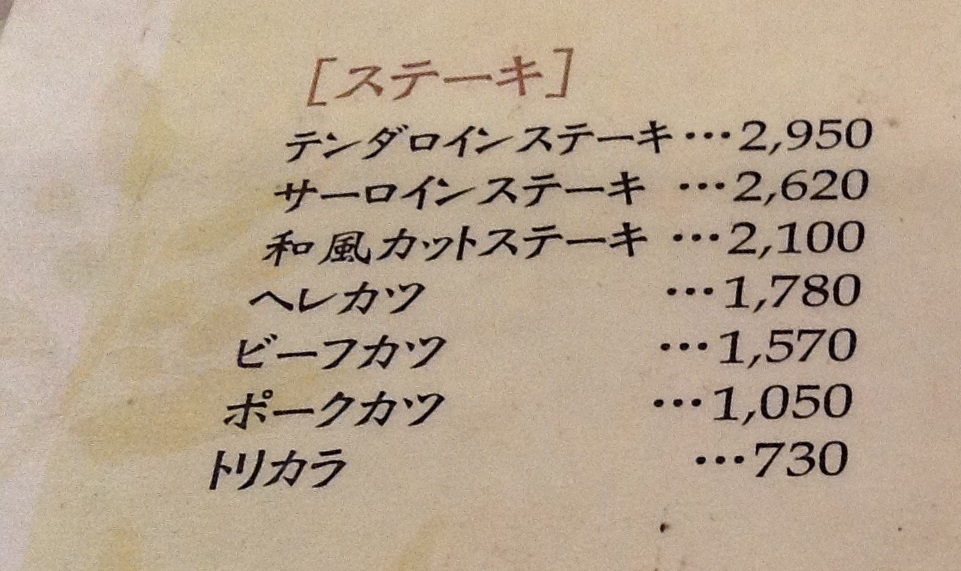 [ステーキ]
テンダロインステーキ…2,950
サーロインステーキ …2,620
和風カットステーキ …2,100
ヘレカツ …1,780
ビーフカツ …1,570
ポークカツ …1,050
トリカラ …730